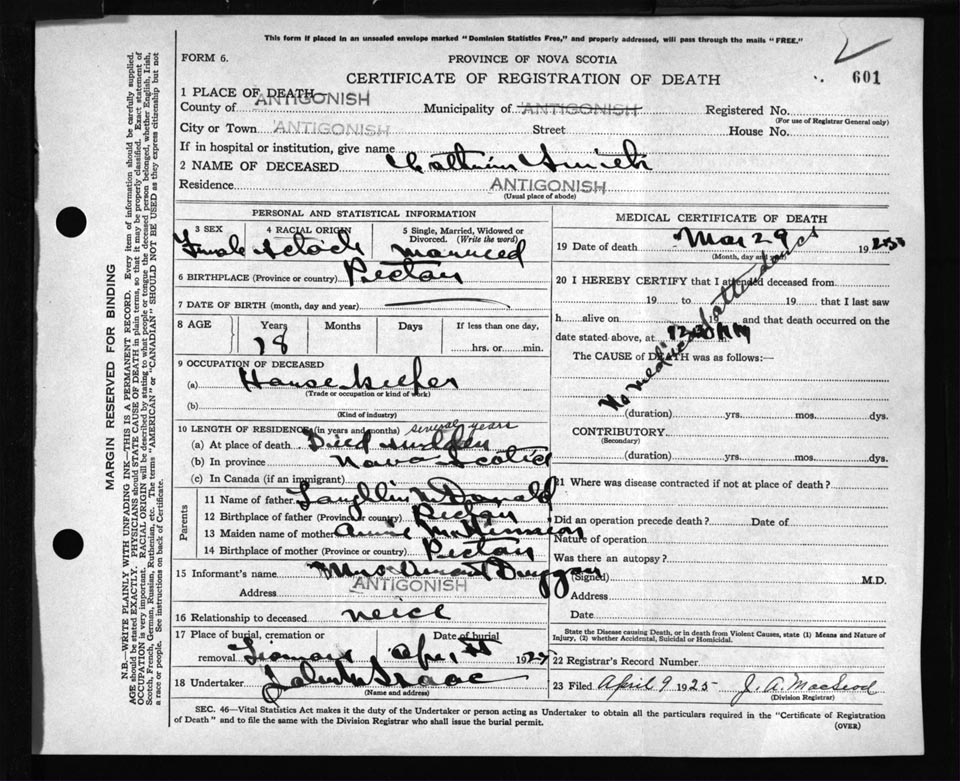 This form if placed in an unsealed envelope marked "Dominion Statistics Free," and properly addressed, will pass through the mails "FREE."
FORM 6.
PROVINCE OF NOVA SCOTIA
CERTIFICATE OF REGISTRATION OF DEATH
601
1 PLACE OF DEATH—
County of ANTIGONISH Municipality of ANTIGONISH Registered No.
(For use of Registrar General only)
City or Town ANTIGONISH Street House No.
If in hospital or institution, give name
2 NAME OF DECEASED
Residence ANTIGONISH
(Usual place of abode)
PERSONAL AND STATISTICAL INFORMATION
3 SEX 4 RACIAL ORIGIN 5 Single, Married, Widowed or Divorced. (Write the word)
Female Married
6 BIRTHPLACE (Province or country) Pictou
7 DATE OF BIRTH (month, day and year)
8 AGE Years Months Days If less than one day,
78 hrs. or min.
9 OCCUPATION OF DECEASED
(a) House keeper
(Trade or occupation or kind of work)
(b)
(Kind of industry)
10 LENGTH OF RESIDENCE (in years and months) several years
(a) At place of death Died sudden
(b) In province Nova Scotia
(c) In Canada (if an immigrant)
Parents
11 Name of father
12 Birthplace of father (Province or country) Pictou
13 Maiden name of mother Annie
14 Birthplace of mother (Province or country) Pictou
15 Informant's name Mrs Duggan
Address ANTIGONISH
16 Relationship to deceased neice
17 Place of burial, cremation or removal Date of burial
192
18 Undertaker
(Name and address)
MEDICAL CERTIFICATE OF DEATH
19 Date of death Mar 29 192
(Month, day and year)
20 I HEREBY CERTIFY that I attended deceased from
19 to 19 that I last saw
h alive on 19 and that death occurred on the
date stated above, at
The CAUSE of DEATH was as follows:—
No medical attendance
(duration) yrs. mos. dys.
CONTRIBUTORY
(Secondary)
(duration) yrs. mos. dys.
21 Where was disease contracted if not at place of death?
Did an operation precede death? Date of
Nature of operation
Was there an autopsy?
(Signed) M.D.
Address
Date
State the Disease causing Death, or in death from Violent Causes, state (1) Means and Nature of Injury, (2) whether Accidental, Suicidal or Homicidal.
22 Registrar's Record Number
23 Filed April 9 1925 J. A. MacLeod
(Division Registrar)
SEC. 46—Vital Statistics Act makes it the duty of the Undertaker or person acting as Undertaker to obtain all the particulars required in the "Certificate of Registration
of Death" and to file the same with the Division Registrar who shall issue the burial permit.
(OVER)
MARGIN RESERVED FOR BINDING
N.B.—WRITE PLAINLY WITH UNFADING INK—THIS IS A PERMANENT RECORD. Every item of information should be carefully supplied.
AGE should be stated EXACTLY. PHYSICIANS should STATE CAUSE OF DEATH in plain terms, so that it may be properly classified. Exact statement of
OCCUPATION is very important. RACIAL ORIGIN will be described by stating to what people or tongue the deceased person belonged, whether English, Irish,
Scotch, French, German, Russian, Ruthenian, etc. The terms "AMERICAN" or "CANADIAN" SHOULD NOT BE USED as they express citizenship but not
a race or people. See instructions on back of Certificate.